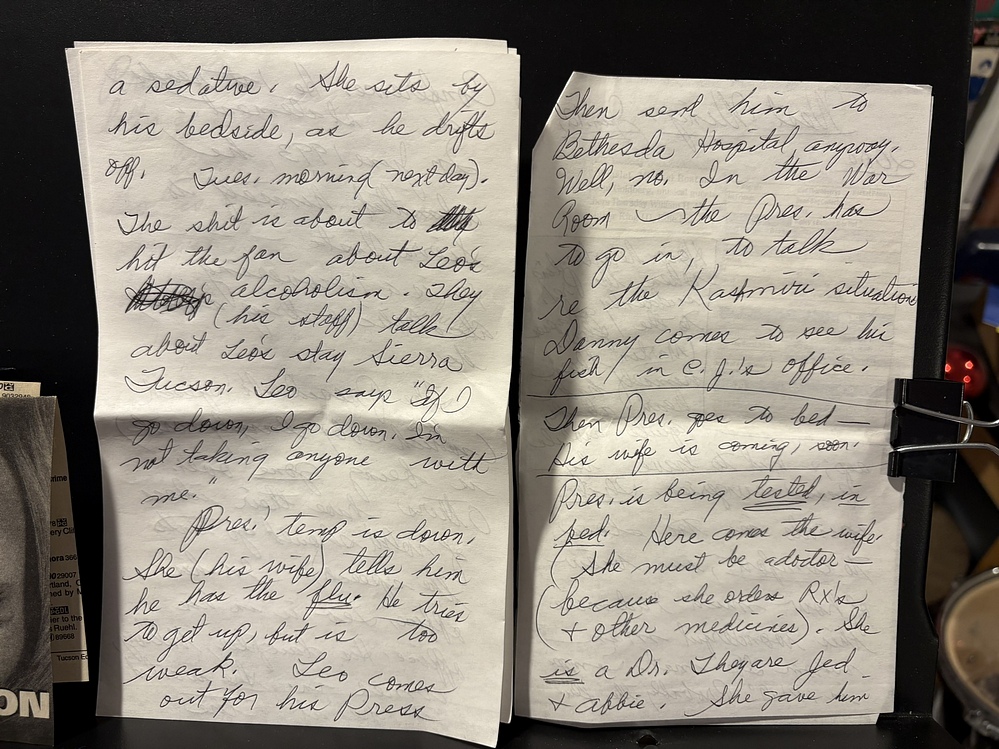 a sedative. She sits by
his bedside, as he drifts
off. Tues. morning (next day).
The shit is about to
hit the fan about Leo's
alcoholism. They
(his staff) talk
about Leo's stay Sierra
Tucson. Leo says "If I
go down, I go down. I'm
not taking anyone with
me."
Pres.' temp is down.
She (his wife) tells him
he has the flu. He tries
to get up, but is too
weak. Leo comes
out for his Press
Then send him to
Bethesda Hospital, anyway.
Well, no. In the War
Room the Pres. has
to go in, to talk
re the Kashmiri situation
Danny comes to see his
fish/ in C.J.'s office.
Then Pres. goes to bed —
His wife is coming, soon.
Pres. is being tested, in
bed. Here comes the wife.
(She must be adoctor —
(because she orders Rx's
+ other medicines). She
is a Dr. They are Jed
+ abbie. She gave him
ON
Tucson